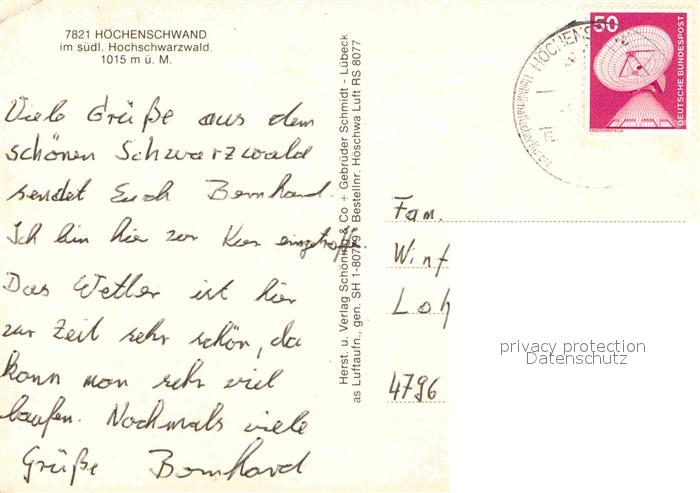 7821 HÖCHENSCHWAND
im südl. Hochschwarzwald.
1015 m ü. M.
Viele Grüße aus dem
schönen Schwarzwald
sendet Euch Bernhard.
Ich bin hier zur Kur eingetroffen.
Das Wetter ist hier
zur Zeit sehr schön, da
kann man sehr viel
laufen. Nochmals viele
Grüße Bernhard
Herst. u. Verlag Schöning & Co + Gebrüder Schmidt - Lübeck
as Luftaufn., gen. SH 1-807 Bestellnr. Höschwa Luft RS 8077
HÖCHENS
50
DEUTSCHE BUNDESPOST
ERDEFUNKSTELLE
Fam.
Winf
Loh
4796
privacy protection
Datenschutz